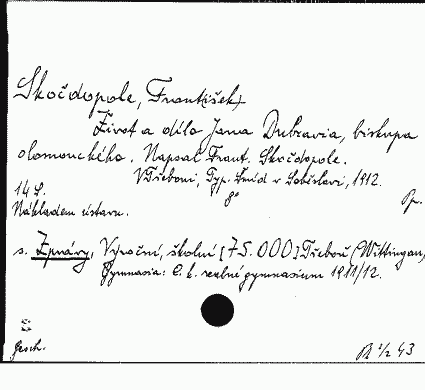 Skočdopole, František
Život a dílo Jana Dubravia, biskupa
olomouckého. Napsal Frant. Skočdopole.
V Třeboni, Typ. Šmíd v Soběslavi, 1912.
14 S. 8° Pp.
Nákladem ústavu.
s. Zprávy, Výroční, školní [75.000] Třeboň (Wittingau)
Gymnasia: C. k. reálné gymnasium 1911/12.
Gesch.